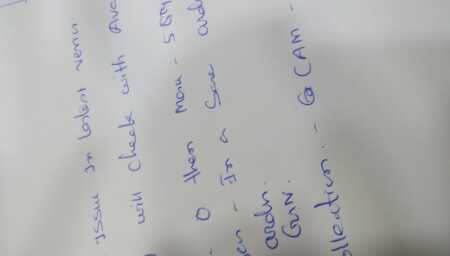 Issue in latest versi
will check with Ava
0 then mark - 
en - In a Same ardn
ardn.
GRN.
ollection. - @ CAM -